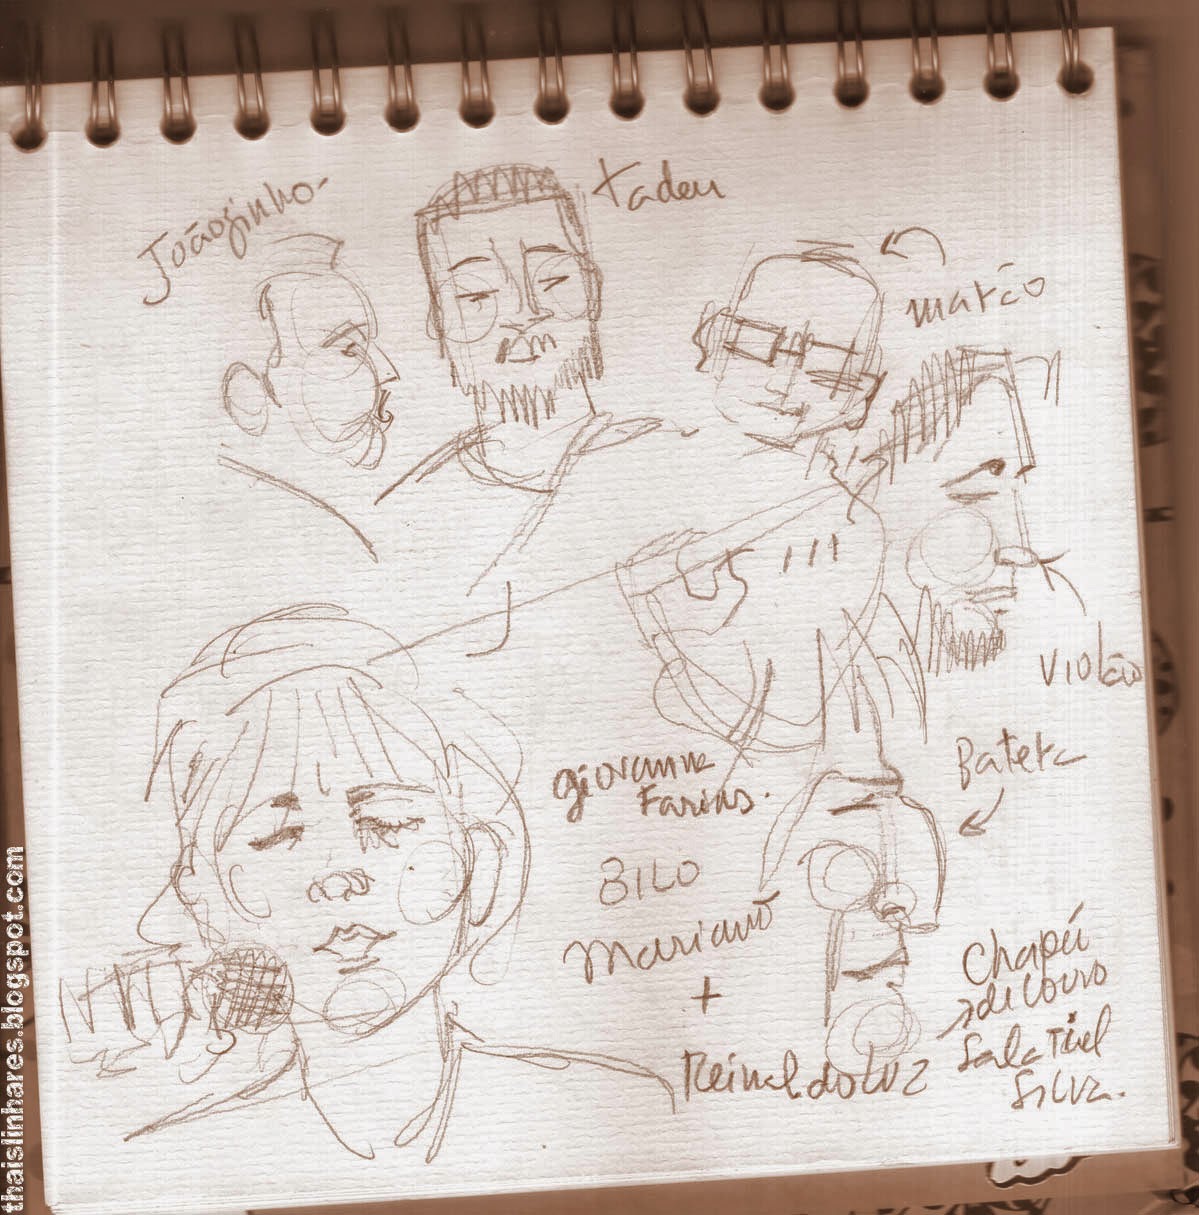 Joãozinho
tadeu
marcão
violão
Batera
giovanna
Farias.
BILO
mariano
+
Reinaldo LUZ
Chapéu
de Couro
Salatiel
Silva.
thaislinhares.blogspot.com